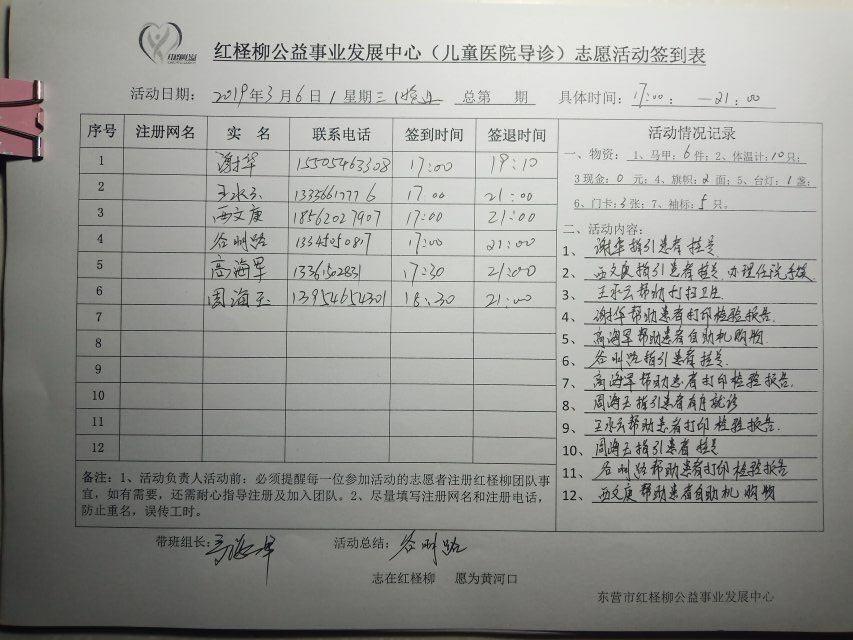 红柽柳公益事业发展中心（儿童医院导诊）志愿活动签到表
活动日期：2019年3月6日 星期三 总第 期 具体时间：17:00：—21:00
序号 注册网名 实 名 联系电话 签到时间 签退时间
1 谢华 15505463308 17:00 19:10
2 王水云 17:00 21:00
3 西文庚 18562027907 17:00 21:00
4 谷明路 13345050817 17:00 21:00
5 高海军 17:30 21:00
6 周海玉 13954654301 18:30 21:00
7
8
9
10
11
12
备注：1、活动负责人活动前：必须提醒每一位参加活动的志愿者注册红柽柳团队事
宜，如有需要，还需耐心指导注册及加入团队。2、尽量填写注册网名和注册电话，
防止重名，误传工时。
活动情况记录
一、物资：1、马甲：6件；2、体温计：10只；
3现金：0元；4、旗帜：2面；5、台灯：1盏；
6、门卡：3张；7、袖标：5只。
二、活动内容：
1、谢华指引患者挂号
2、西文庚指引患者挂号 办理住院手续
3、王水云帮助打扫卫生
4、谢华帮助患者打印检验报告.
5、高海军帮助患者自助机购物.
6、谷明路指引患者挂号.
7、高海军帮助患者打印检验报告.
8、周海玉指引患者就诊
9、王水云帮助患者打印检验报告.
10、周海玉指引患者挂号
11、谷明路帮助患者打印检验报告
12、西文庚帮助患者自助机购物
带班组长：高海军 活动总结：谷明路
志在红柽柳 愿为黄河口
东营市红柽柳公益事业发展中心